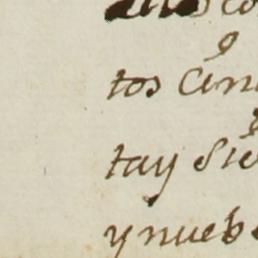 tos Cin
tay Sie
y nueb